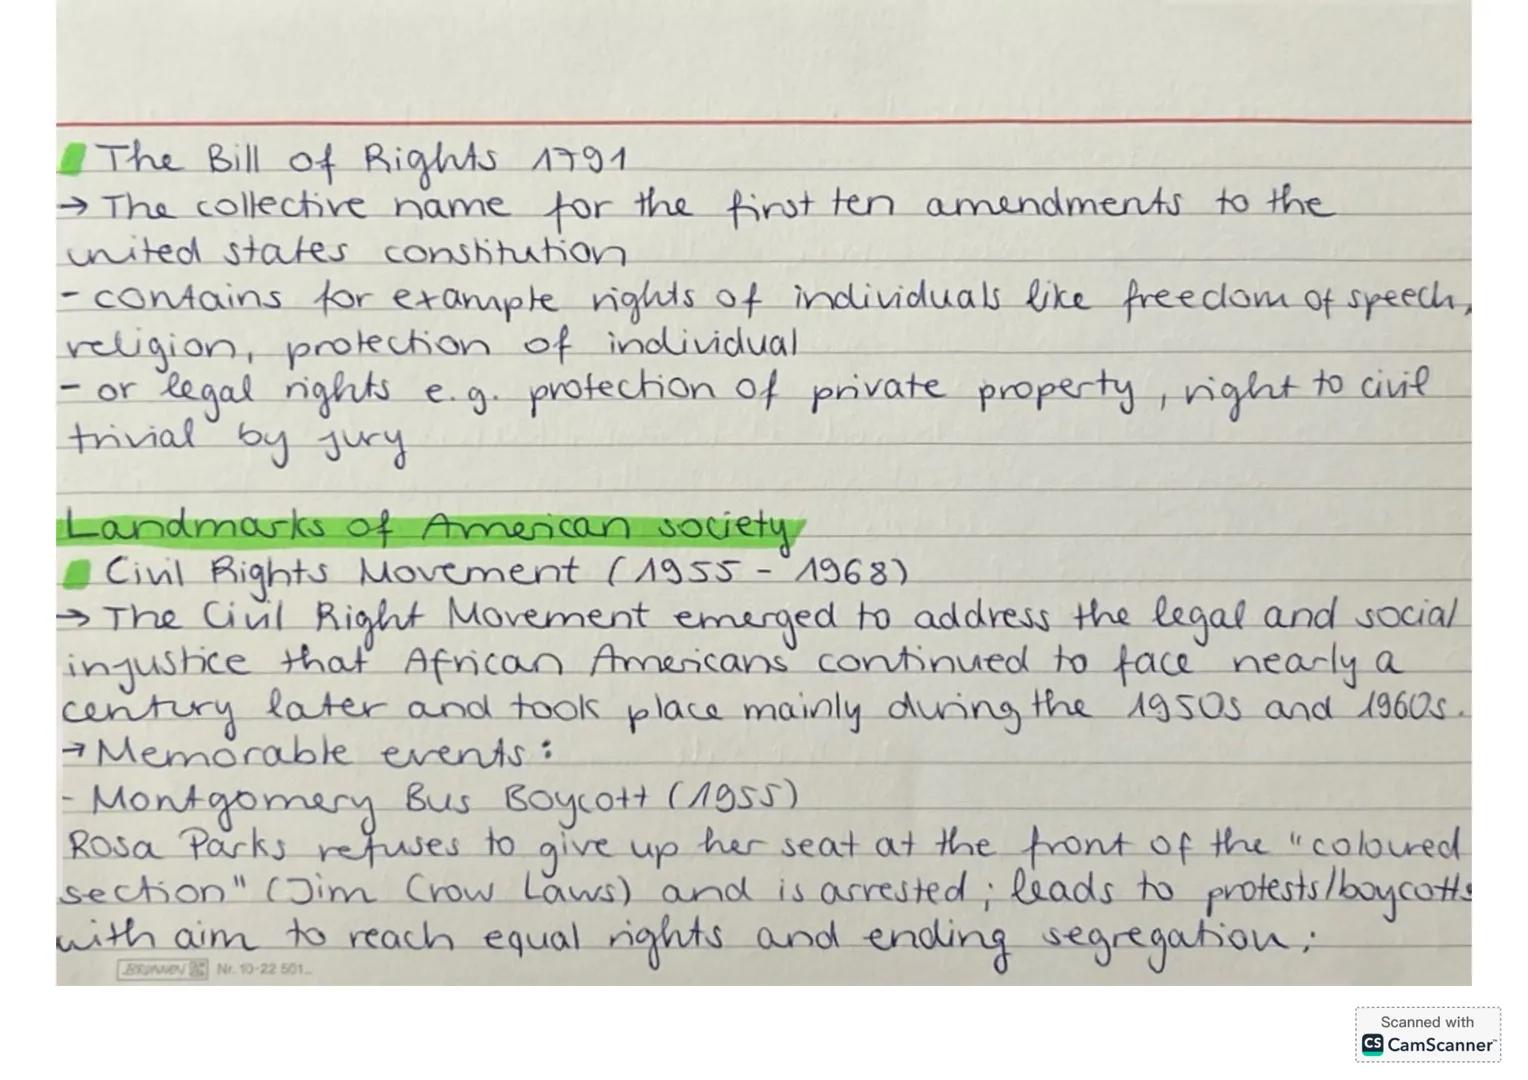 The Bill of Rights 1791
→ The collective name for the first ten amendments to the
united states constitution
- contains for example rights of individuals like freedom of speech,
religion, protection of individual
- or legal rights e.g. protection of private property, right to civil
trivial by jury
Landmarks of American society
Civil Rights Movement (1955 - 1968)
→ The Civil Right Movement emerged to address the legal and social
injustice that African Americans continued to face nearly a
century later and took place mainly during the 1950s and 1960s.
→ Memorable events:
- Montgomery Bus Boycott (1955)
Rosa Parks refuses to give up her seat at the front of the "coloured
section" (Jim Crow Laws) and is arrested; leads to protests/boycotts
with aim to reach equal rights and ending segregation;
BRUNNEN Nr. 10-22 501
Scanned with
CS CamScanner